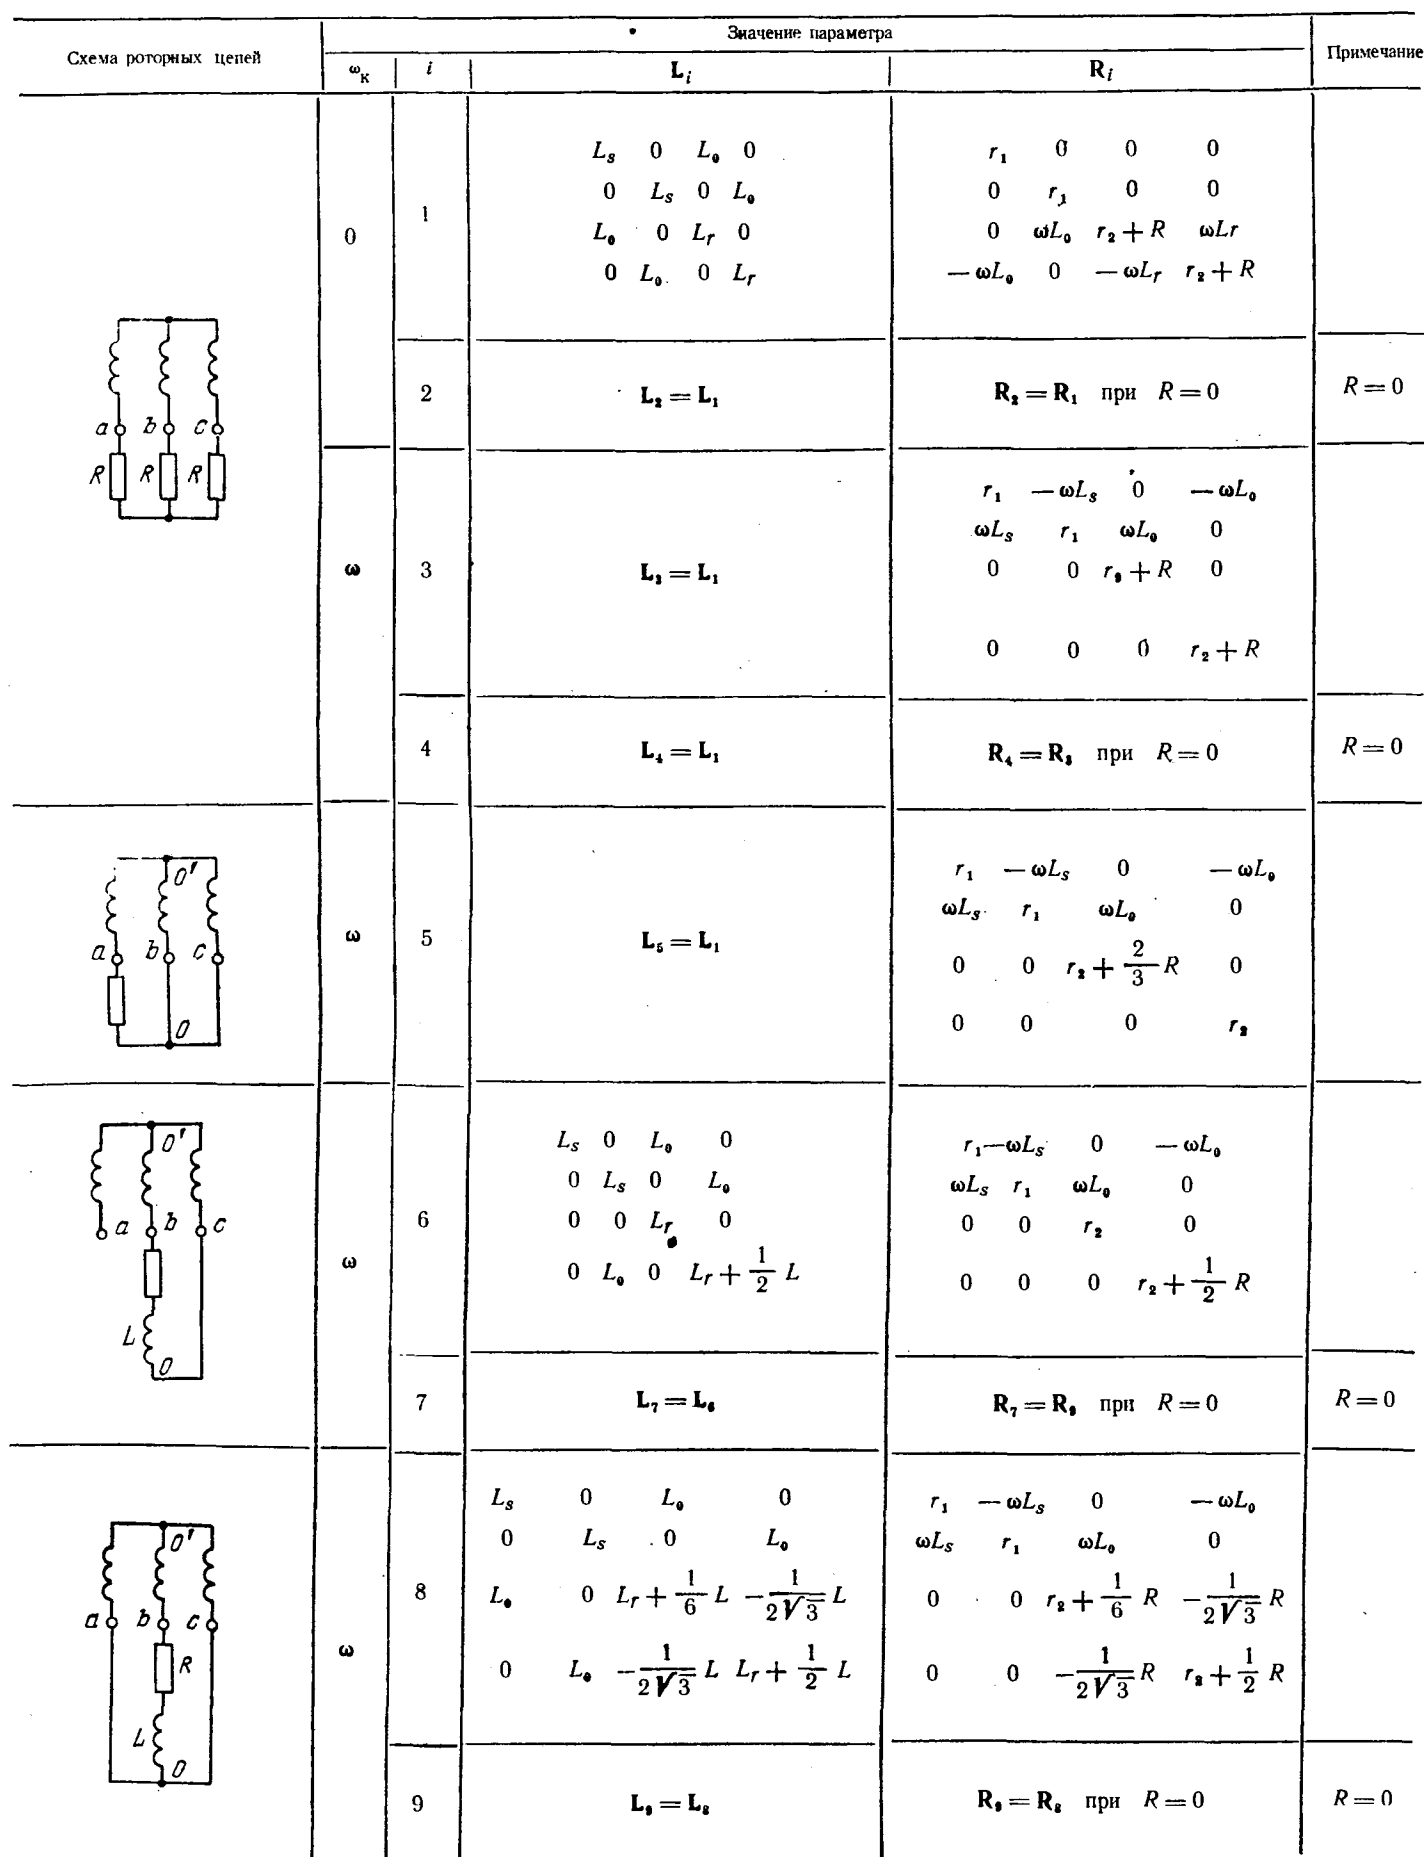 Схема роторных цепей
Значение параметра
Примечание
ω_к
i
L_i
R_i
a b c
R R R
0
1
L_s 0 L_0 0
0 L_s 0 L_0
L_0 0 L_r 0
0 L_0 0 L_r
r_1 0 0 0
0 r_1 0 0
0 ωL_0 r_2 + R ωLr
— ωL_0 0 — ωL_r r_2 + R
2
L_2 = L_1
R_2 = R_1 при R = 0
R = 0
ω
3
L_3 = L_1
r_1 — ωL_s 0 — ωL_0
ωL_s r_1 ωL_0 0
0 0 r_2 + R 0
0 0 0 r_2 + R
4
L_4 = L_1
R_4 = R_3 при R = 0
R = 0
O'
a b c
O
ω
5
L_5 = L_1
r_1 — ωL_s 0 — ωL_0
ωL_s r_1 ωL_0 0
0 0 r_2 + 2/3 R 0
0 0 0 r_2
O'
a b c
L
O
ω
6
L_s 0 L_0 0
0 L_s 0 L_0
0 0 L_r 0
0 L_0 0 L_r + 1/2 L
r_1 — ωL_s 0 — ωL_0
ωL_s r_1 ωL_0 0
0 0 r_2 0
0 0 0 r_2 + 1/2 R
7
L_7 = L_6
R_7 = R_9 при R = 0
R = 0
O'
a b c
R
L
O
ω
8
L_s 0 L_0 0
0 L_s 0 L_0
L_0 0 L_r + 1/6 L — 1/(2√3) L
0 L_0 — 1/(2√3) L L_r + 1/2 L
r_1 — ωL_s 0 — ωL_0
ωL_s r_1 ωL_0 0
0 0 r_2 + 1/6 R — 1/(2√3) R
0 0 — 1/(2√3) R r_2 + 1/2 R
9
L_9 = L_8
R_9 = R_8 при R = 0
R = 0